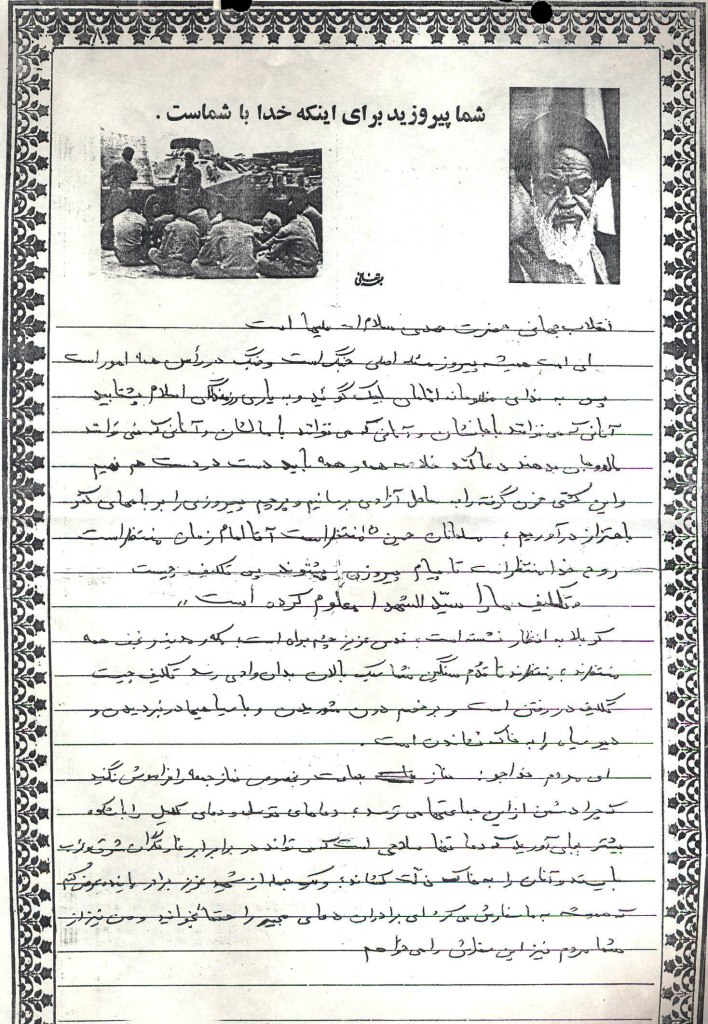 شما پیروزید برای اینکه خدا با شماست .
انقلاب جهانی حضرت مهدی سلام الله علیها است
ای امت همیشه پیروز مسئله اصلی جنگ است و جنگ در رأس همه امور است
پس به ندای مظلومانه امامتان لبیک گوئید و به یاری رزمندگان اسلام بشتابید
آنانی که می توانند با جانشان و آنانی که می توانند با مالشان و آنانی که می توانند
مال و جان بدهند دعا کنند خلاصه همه و همه باید دست در دست هم نهیم
و این کشتی خون گرفته را به ساحل آزادی برسانیم و پرچم پیروزی را بر بامهای
باهتزاز درآوریم ؛ مسلمانان منتظر است آقا امام زمان منتظر است
روح خدا منتظر است تا پیام پیروزی را بشنوند پس تکلیف چیست
و تکلیف ما را سیّد الشهدا معلوم کرده است ,,
کربلا به انتظار نشسته است ؛ قدس عزیز چشم براه است ؛ مکه و مدینه و نجف همه
منتظرند ؛ منتظرند تا قدم سنگین شما سبک بالان بدان وادی رسد تکلیف چیست
تکلیف در رفتن است و بر خصم دون شوریدن و با سیاهیها در نبردیدن و
دیو سیاه را به خاک نشاندن است .
ای مردم خواجو : نماز جماعت و بخصوص نماز جمعه را فراموش نکنید
که چرا دشمن از این جماعتها می ترسد ؛ دعاهای توسل و دعای کمیل را باشکوه
بیشتر بجای آورید که دعا تنها سلاحی است که می تواند در برابر غارتگران شرق و غرب
بایستد و آنان را به خاک ذلّت کشاند ؛ و یک جمله از شهید عزیز برادر عرض کنم
که همیشه به ما سفارش می کرد ای برادران دعای مجیر را حتماً بخوانید و من نیز از
شما مردم نیز این سفارش را می خواهم